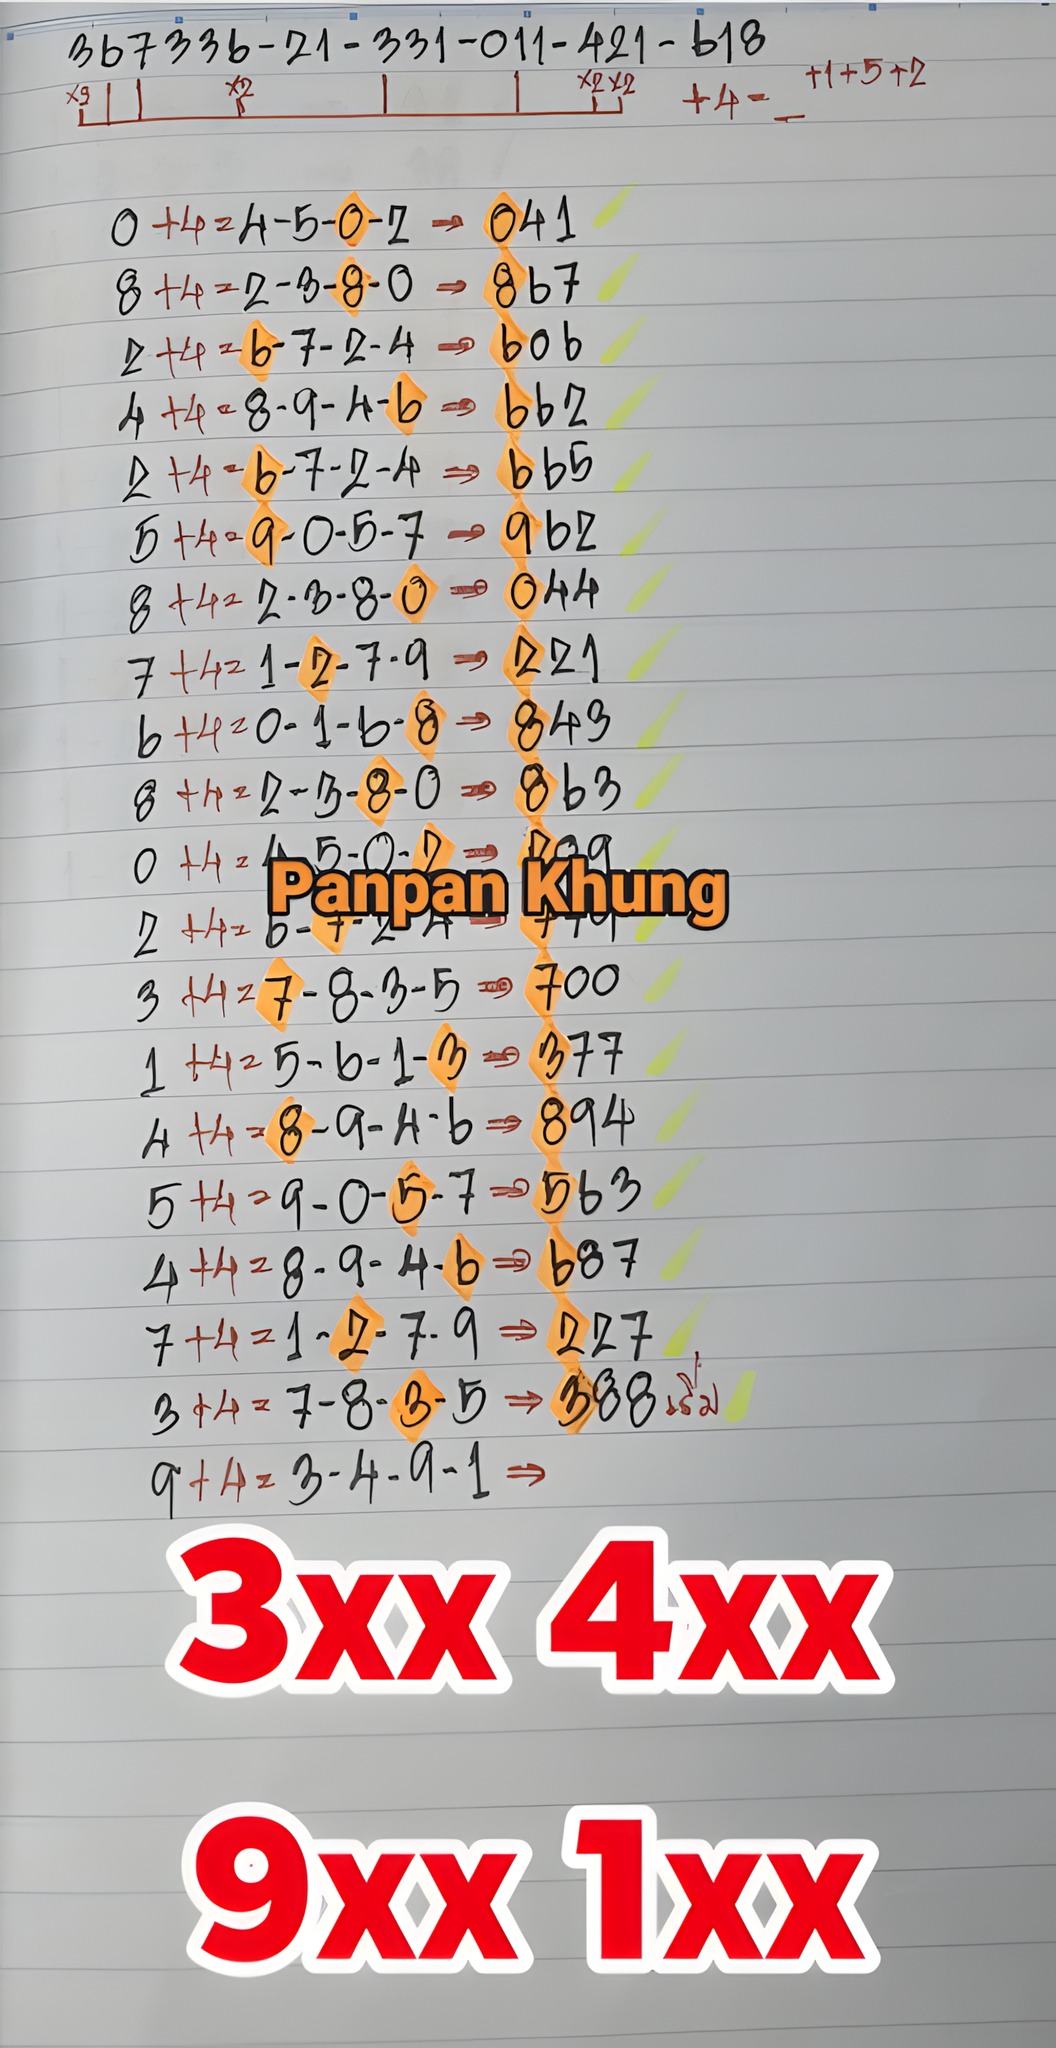 367336-21-331-011-421-618
x9 x2 x2 x2 +4= _ +1+5+2
0+4=4-5-0-2 ⇒ 041
8+4=2-3-8-0 ⇒ 867
2+4=6-7-2-4 ⇒ 606
4+4=8-9-4-6 ⇒ 662
2+4=6-7-2-4 ⇒ 665
5+4=9-0-5-7 ⇒ 962
8+4=2-3-8-0 ⇒ 044
7+4=1-2-7-9 ⇒ 221
6+4=0-1-6-8 ⇒ 843
8+4=2-3-8-0 ⇒ 863
0+4=4-5-0-2 ⇒
Panpan Khung
2+4=6-7-2-4 ⇒
3+4=7-8-3-5 ⇒ 700
1+4=5-6-1-3 ⇒ 377
4+4=8-9-4-6 ⇒ 894
5+4=9-0-5-7 ⇒ 563
4+4=8-9-4-6 ⇒ 687
7+4=1-2-7-9 ⇒ 227
3+4=7-8-3-5 ⇒ 388 เริ่ม
9+4=3-4-9-1 ⇒
3xx 4xx
9xx 1xx